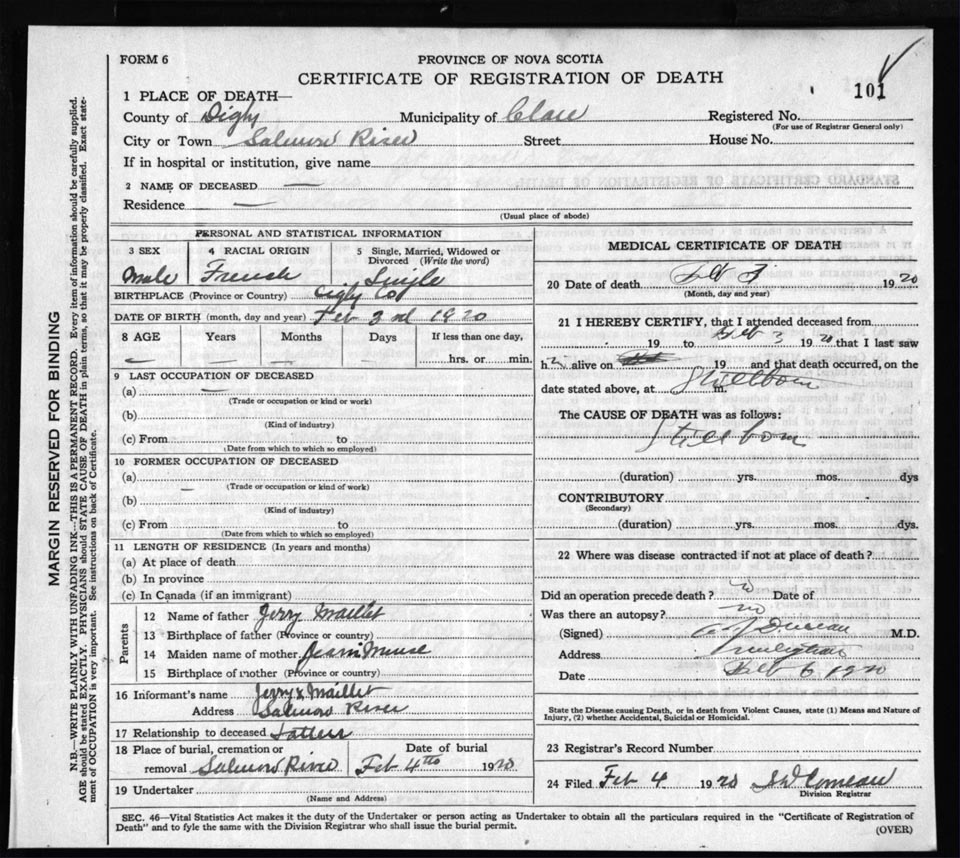 FORM 6
PROVINCE OF NOVA SCOTIA
CERTIFICATE OF REGISTRATION OF DEATH
101
1 PLACE OF DEATH—
County of Digby Municipality of Clare Registered No.
(For use of Registrar General only)
City or Town Salmon River Street House No.
If in hospital or institution, give name
2 NAME OF DECEASED —
Residence —
(Usual place of abode)
PERSONAL AND STATISTICAL INFORMATION
3 SEX 4 RACIAL ORIGIN 5 Single, Married, Widowed or Divorced (Write the word)
Male French Single
BIRTHPLACE (Province or Country) Digby Co
DATE OF BIRTH (month, day and year) Feb 3rd 1920
8 AGE Years Months Days If less than one day,
— — hrs. or min.
9 LAST OCCUPATION OF DECEASED
(a) —
(Trade or occupation or kind or work)
(b)
(Kind of industry)
(c) From to
(Date from which to which so employed)
10 FORMER OCCUPATION OF DECEASED
(a) —
(Trade or occupation or kind of work)
(b)
(Kind of industry)
(c) From to
(Date from which to which so employed)
11 LENGTH OF RESIDENCE (In years and months)
(a) At place of death
(b) In province
(c) In Canada (if an immigrant)
Parents
12 Name of father Jerry Maillet
13 Birthplace of father (Province or country)
14 Maiden name of mother Meuse
15 Birthplace of mother (Province or country)
16 Informant's name Jerry Maillet
Address Salmon River
17 Relationship to deceased Father
18 Place of burial, cremation or removal Salmon River
Date of burial Feb 4th 1920
19 Undertaker
(Name and Address)
MEDICAL CERTIFICATE OF DEATH
20 Date of death Feb 3 1920
(Month, day and year)
21 I HEREBY CERTIFY, that I attended deceased from
19 to Feb 3 1920 that I last saw
h alive on 19 and that death occurred, on the
date stated above, at Stillborn m.
The CAUSE OF DEATH was as follows:
Stillborn
(duration) yrs. mos. dys
CONTRIBUTORY
(Secondary)
(duration) yrs. mos. dys.
22 Where was disease contracted if not at place of death?
Did an operation precede death? no Date of
Was there an autopsy? no
(Signed) Duncan M.D.
Address
Date Feb 6 1920
State the Disease causing Death, or in death from Violent Causes, state (1) Means and Nature of
Injury, (2) whether Accidental, Suicidal or Homicidal.
23 Registrar's Record Number
24 Filed Feb 4 1920 Comeau
Division Registrar
SEC. 46—Vital Statistics Act makes it the duty of the Undertaker or person acting as Undertaker to obtain all the particulars required in the "Certificate of Registration of
Death" and to fyle the same with the Division Registrar who shall issue the burial permit.
(OVER)
MARGIN RESERVED FOR BINDING
N.B.—WRITE PLAINLY WITH UNFADING INK—THIS IS A PERMANENT RECORD. Every item of information should be carefully supplied.
AGE should be stated EXACTLY. PHYSICIANS should STATE CAUSE OF DEATH in plain terms, so that it may be properly classified. Exact state-
ment of OCCUPATION is very important. See instructions on back of Certificate.